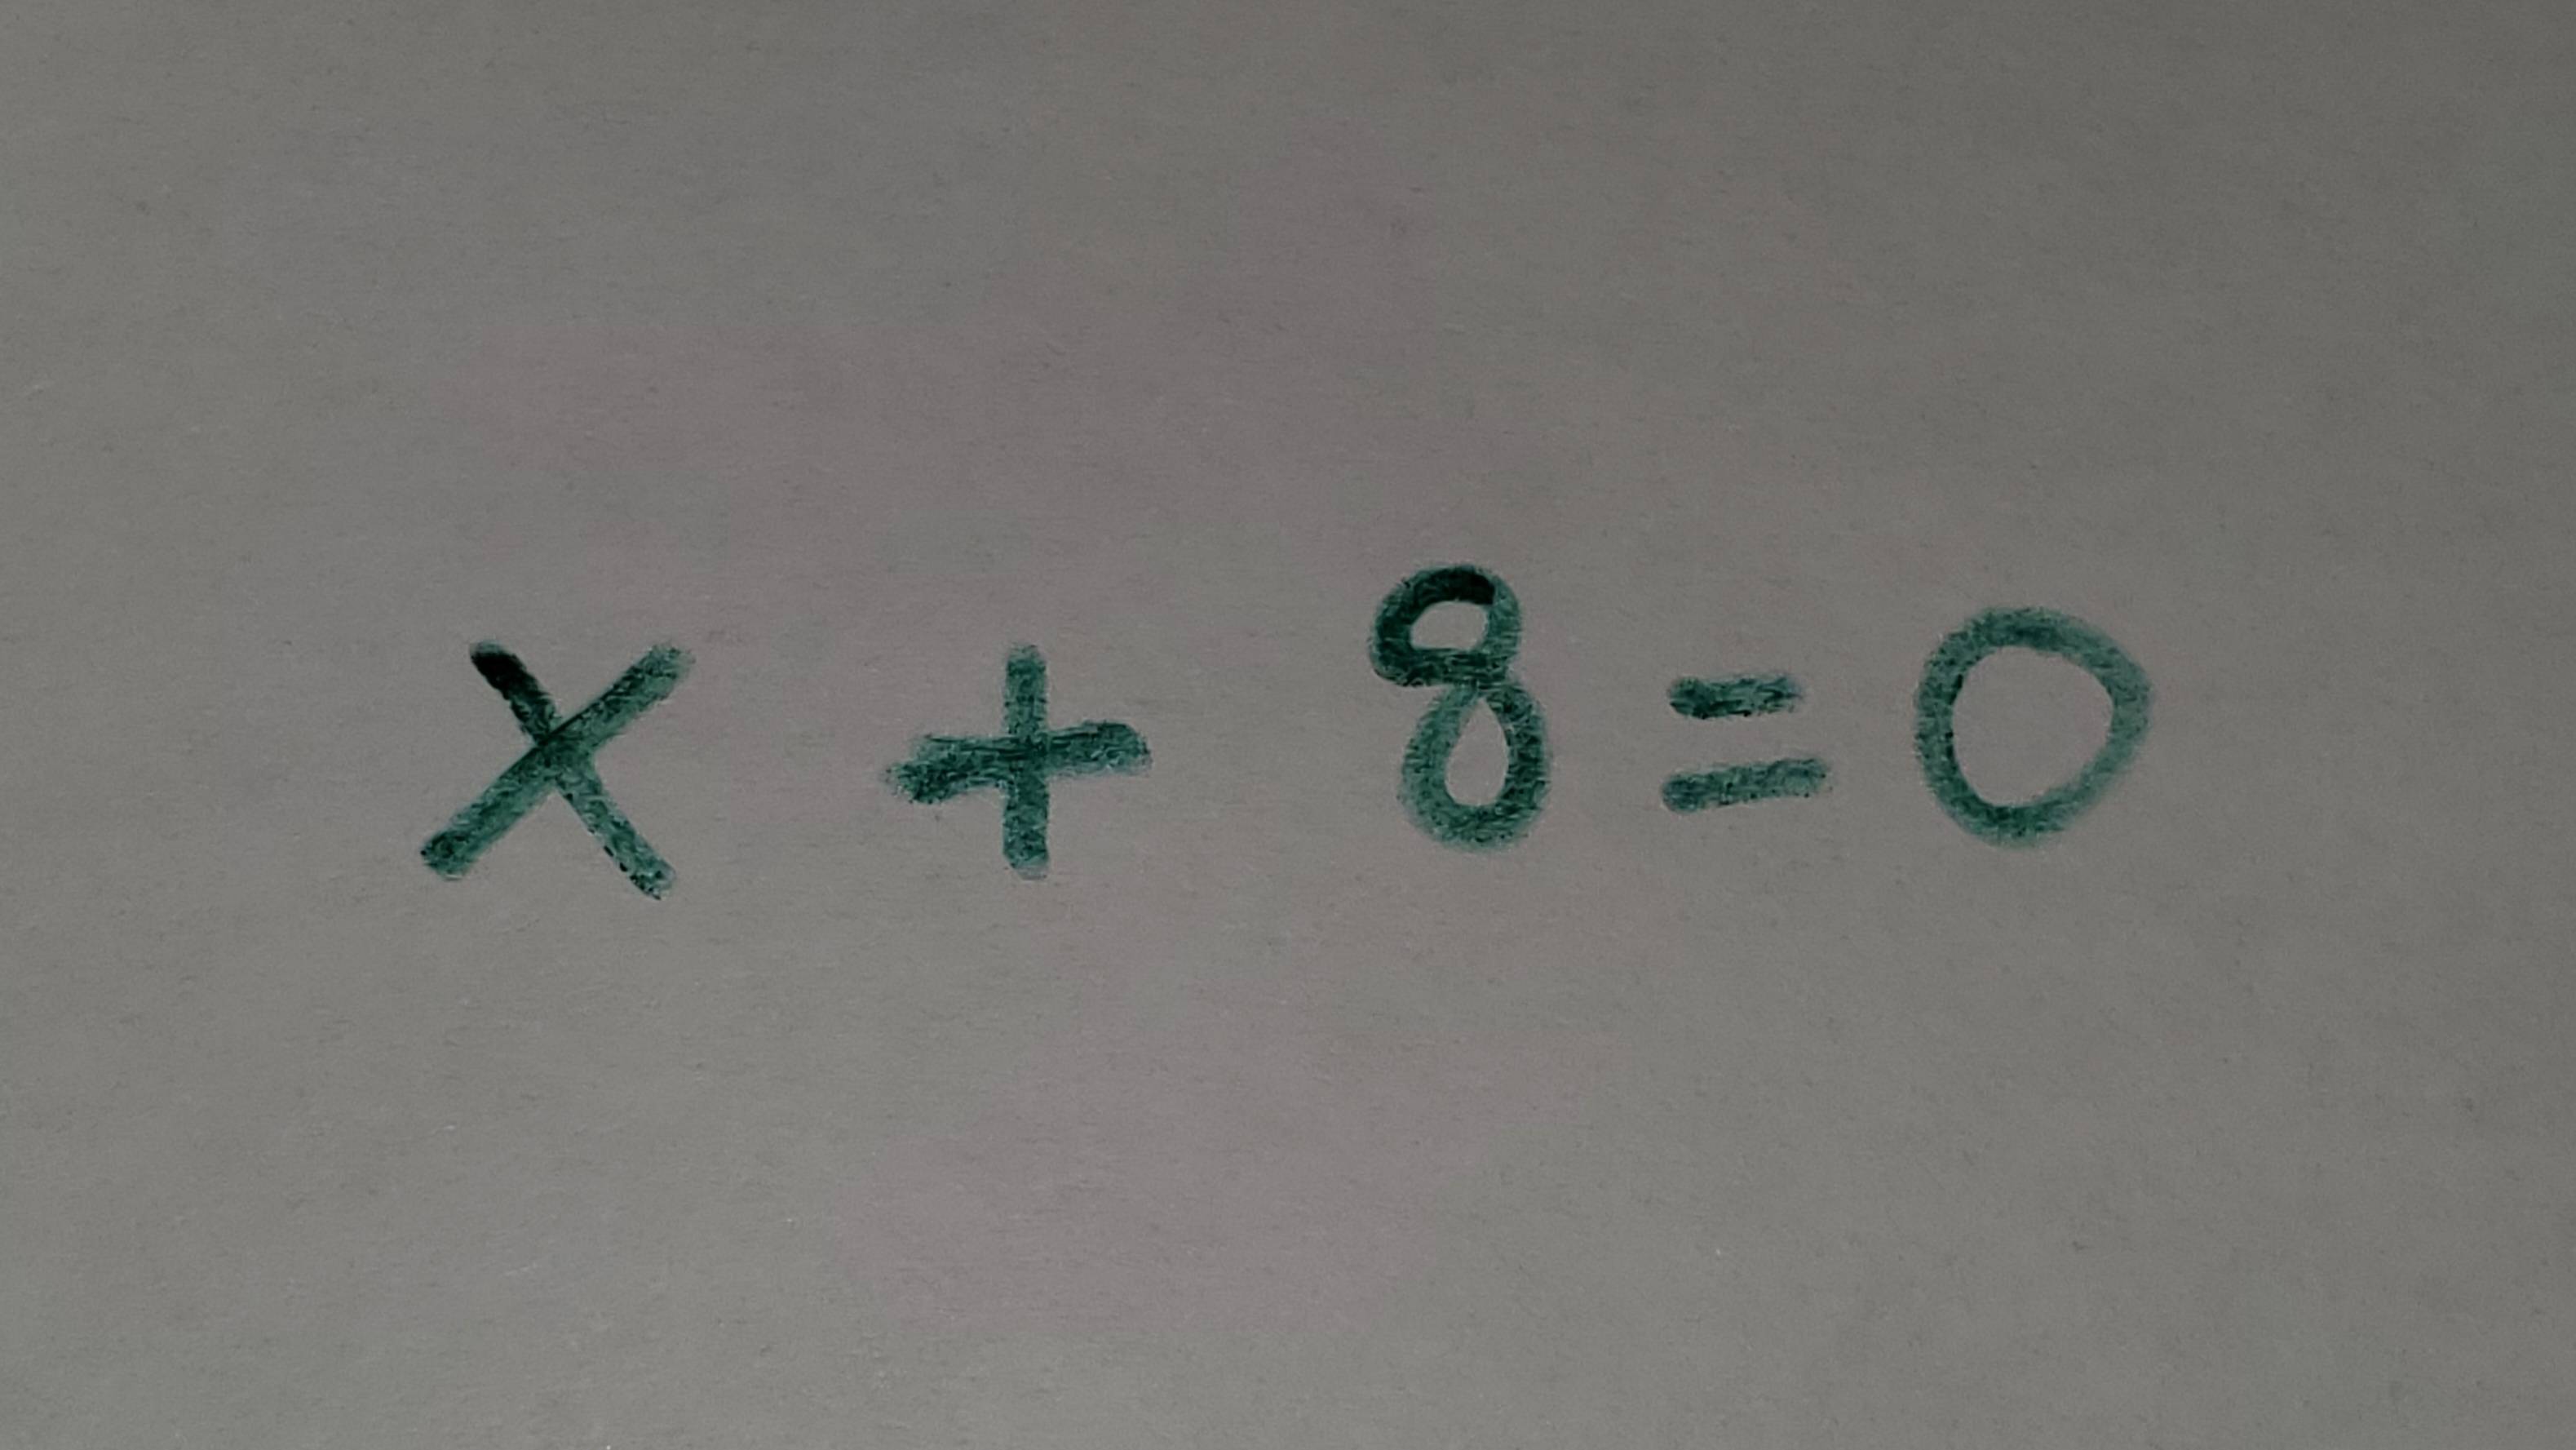 x + 8 = 0